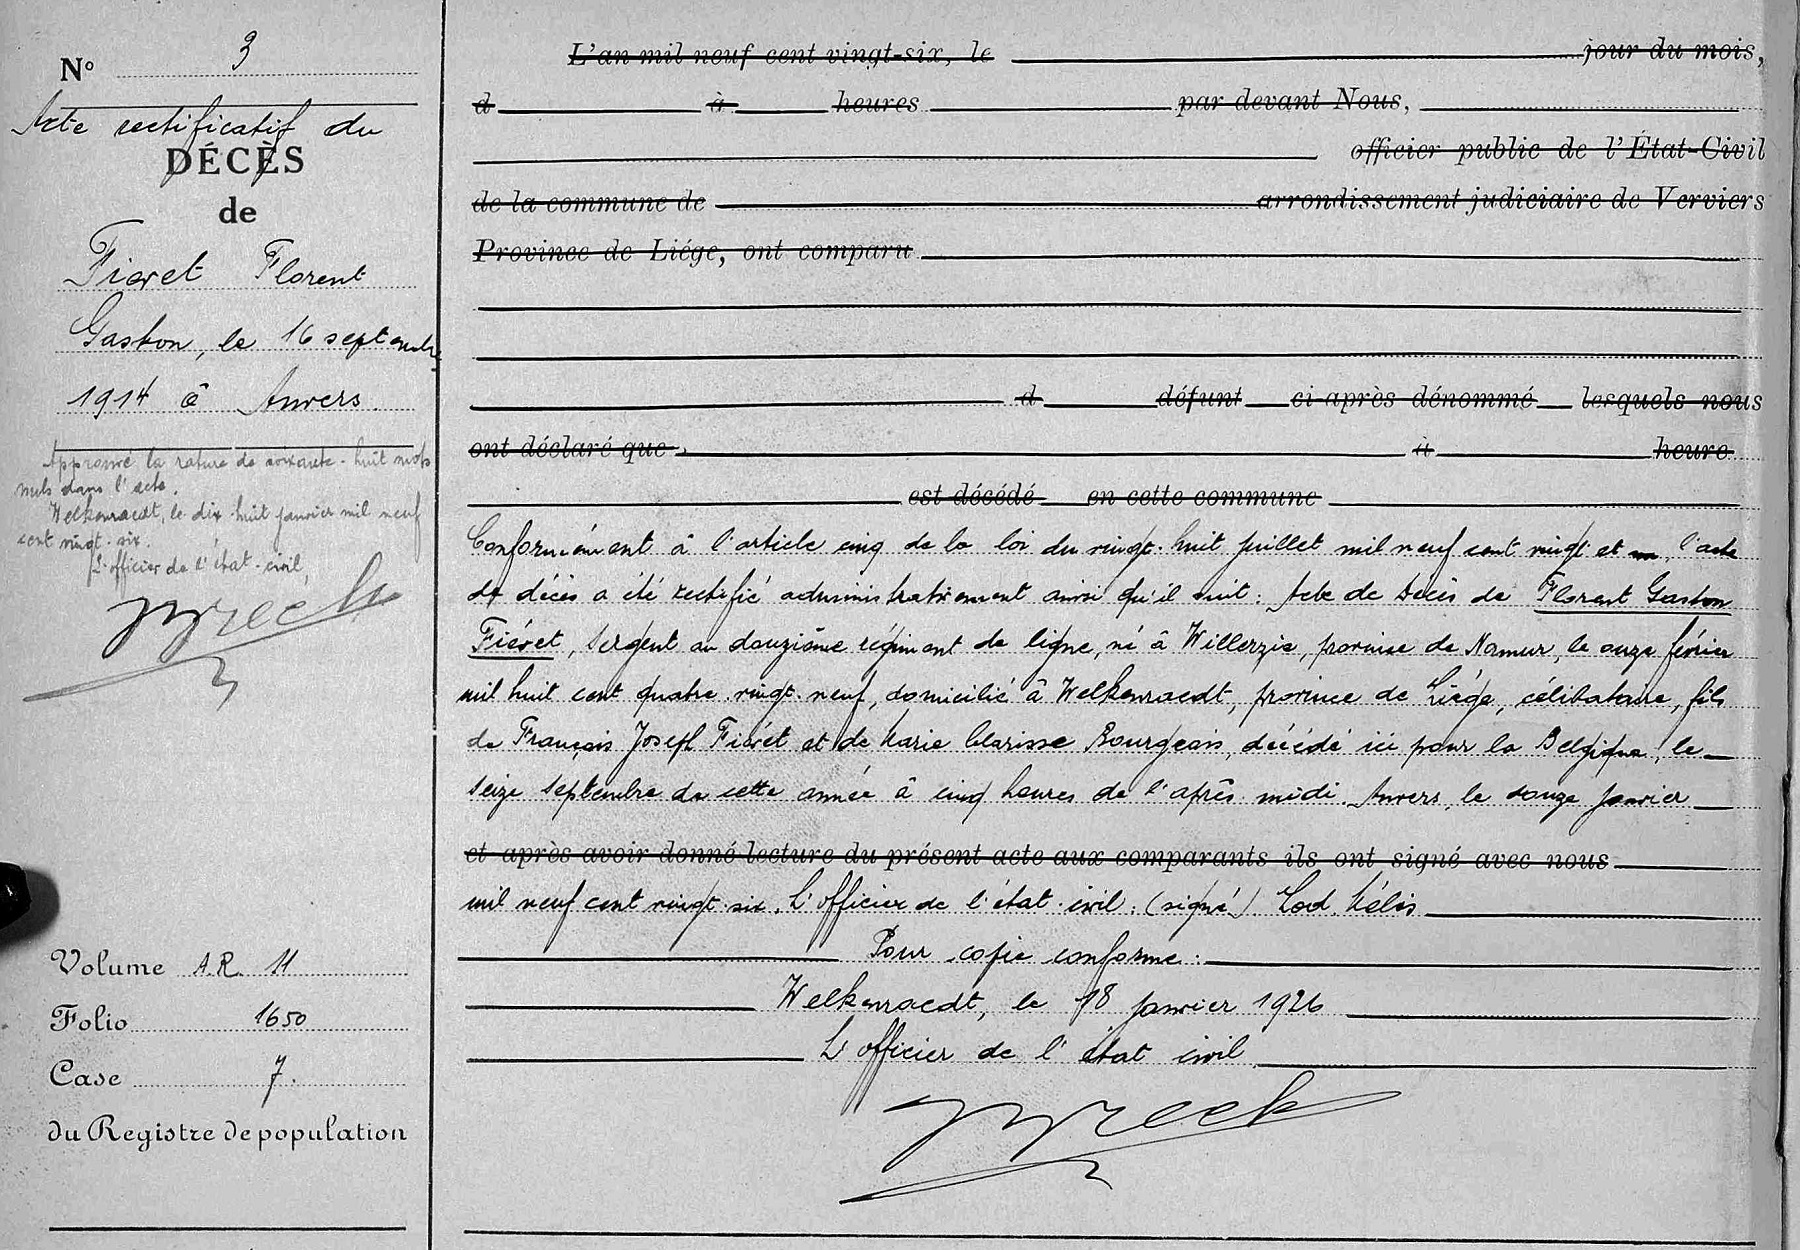 N° 3
Acte rectificatif du
DÉCÈS
de
Fiévet Florent
Gaston, le 16 septembre
1914 à Anvers.
Approuvé la rature de soixante-huit mots
nuls dans l'acte.
Welkenraedt, le dix-huit janvier mil neuf
cent vingt-six.
L'officier de l'état-civil,
Volume A.R. 11
Folio 1650
Case 7.
du Registre de population
L'an mil neuf cent vingt-six, le jour du mois,
d à heures par devant Nous,
officier public de l'État-Civil
de la commune de arrondissement judiciaire de Verviers
Province de Liége, ont comparu
d défunt ci-après dénommé lesquels nous
ont déclaré que à heure
est décédé en cette commune
Conformément à l'article cinq de la loi du vingt-huit juillet mil neuf cent vingt et un, l'acte
de décès a été rectifié administrativement ainsi qu'il suit : Acte de Décès de Florent Gaston
Fiévet, Sergent au douzième régiment de ligne, né à Willerzie, province de Namur, le onze février
mil huit cent quatre-vingt-neuf, domicilié à Welkenraedt, province de Liége, célibataire, fils
de François Joseph Fiévet et de Marie Clarisse Bourgeois, décédé ici pour la Belgique, le
seize septembre de cette année à cinq heures de l'après-midi. Anvers, le douze janvier
et après avoir donné lecture du présent acte aux comparants ils ont signé avec nous
mil neuf cent vingt-six. L'officier de l'état-civil. (signé)
Pour copie conforme :
Welkenraedt, le 18 janvier 1926
L'officier de l'état civil